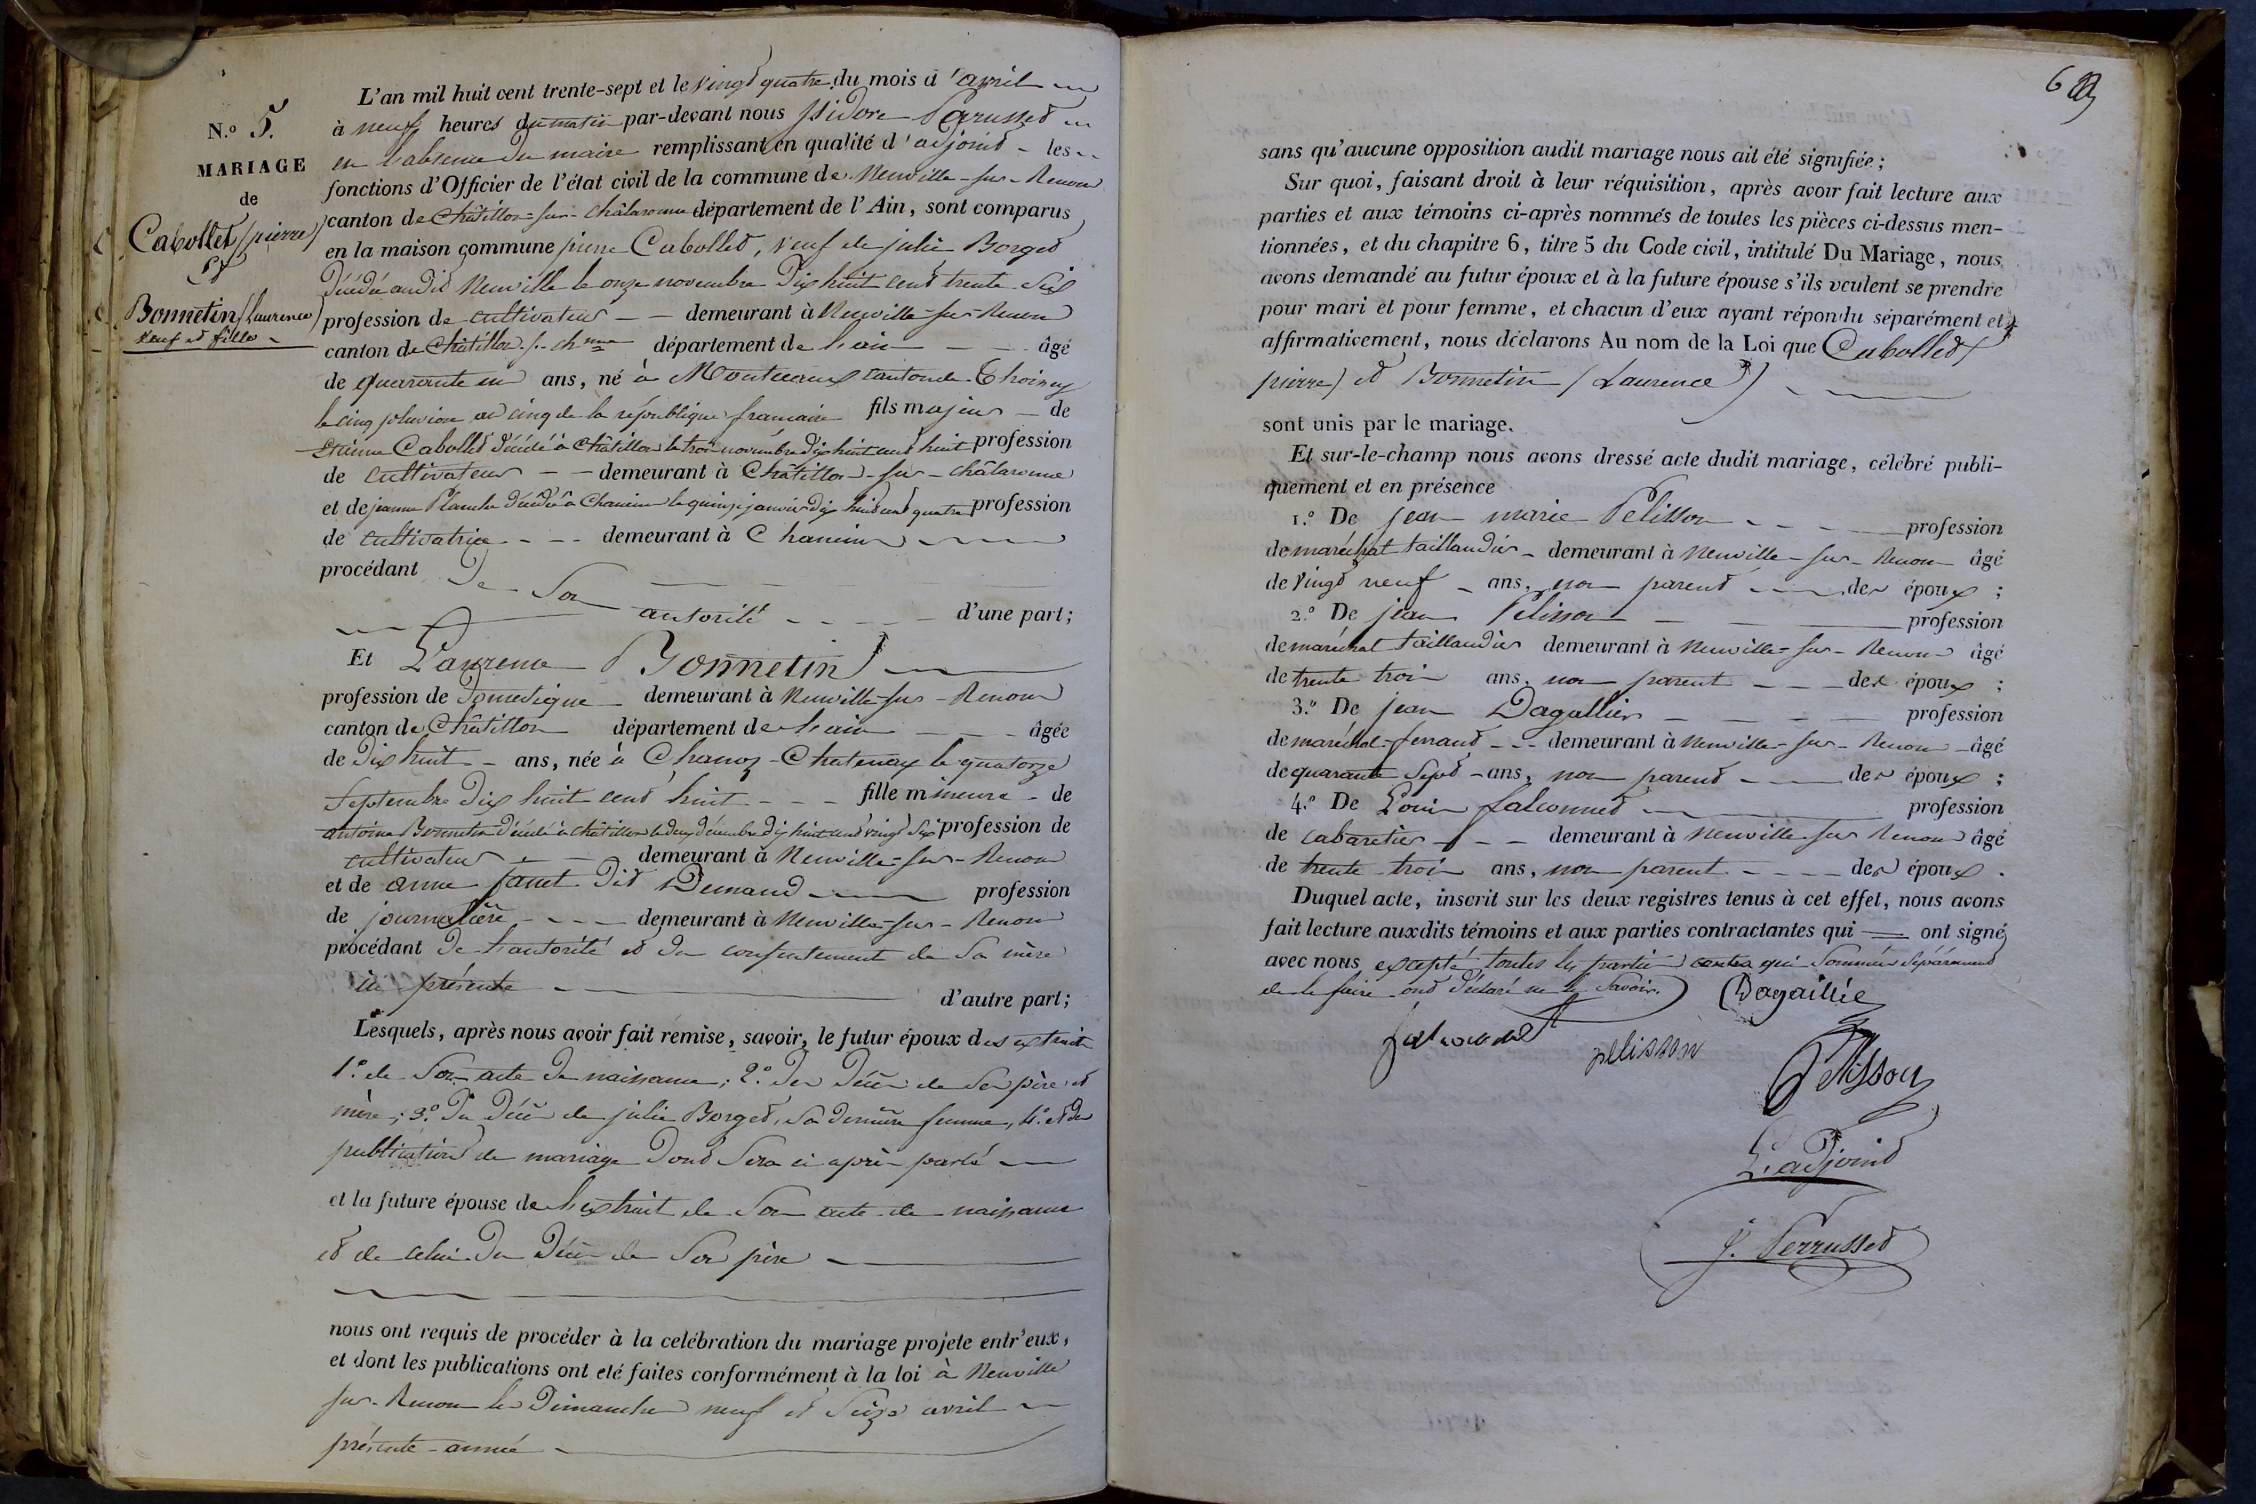 N.º 5.
MARIAGE
de
Cabollet (pierre)
Et
Bonnetin (Laurence)
veuf et fille
L'an mil huit cent trente-sept et le vingt quatre du mois d'avril
à neuf heures du matin par-devant nous Isidore Perrusset
en l'absence du maire remplissant en qualité d'adjoint les
fonctions d'Officier de l'état civil de la commune de Neuville-sur-Renom
canton de Châtillon-sur-Châlaronne département de l'Ain, sont comparus
en la maison commune pierre Cabollet, veuf de julie Borget
décédée audit Neuville le onze novembre dix huit cent trente six
profession de cultivateur demeurant à Neuville-sur-Renom
canton de Châtillon-s-chnne département de l'ain âgé
de quarante un ans, né à Montceaux canton de Thoissey
le cinq pluviose an cinq de la république francaise fils majeur de
Etienne Cabollet décédé à Châtillon le trois novembre dix huit cent huit profession
de cultivateur demeurant à Châtillon-sur-châlaronne
et de jeanne Planche décédée à Chanein le quinze janvier dix huit cent quatre profession
de cultivatrice demeurant à Chanein
procédant De Son
autorité d'une part;
Et Laurence Bonnetin
profession de Domestique demeurant à Neuville-sur-Renom
canton de Châtillon département de l'ain âgée
de Dix huit ans, née à Chanoz-Chatenay le quatorze
Septembre Dix huit cent huit fille mineure de
antoine Bonnetin décédé à Châtillon le deux décembre dix huit cent vingt six profession de
cultivateur demeurant à Neuville-sur-Renom
et de anne fanet dit Demand profession
de journalière demeurant à Neuville-sur-Renom
procédant De l'autorité et du consentement de Sa mère
ici présente d'autre part;
Lesquels, après nous avoir fait remise, savoir, le futur époux des extraits
1.º de Son acte de naissance; 2.º des Décès de Ses père et
mère; 3.º Du Décès de julie Borget, Sa dernière femme, 4.º et des
publications de mariage dont Sera ci après parlé
et la future épouse de l'extrait de Son acte de naissance
et de celui Du Décès de Son père
nous ont requis de procéder à la celébration du mariage projete entr'eux,
et dont les publications ont eté faites conformément à la loi à Neuville
sur-Renom les Dimanches neuf et Seize avril
présente année
sans qu'aucune opposition audit mariage nous ait été signifiée;
Sur quoi, faisant droit à leur réquisition, après avoir fait lecture aux
parties et aux témoins ci-après nommés de toutes les pièces ci-dessus men-
tionnées, et du chapitre 6, titre 5 du Code civil, intitulé Du Mariage, nous
avons demandé au futur époux et à la future épouse s'ils veulent se prendre
pour mari et pour femme, et chacun d'eux ayant répondu séparément et
affirmativement, nous déclarons Au nom de la Loi que Cabollet (
pierre) et Bonnetin (Laurence)
sont unis par le mariage.
Et sur-le-champ nous avons dressé acte dudit mariage, célébré publi-
quement et en présence
1.º De jean marie Pelisson profession
de maréchal taillandier demeurant à Neuville-sur-Renom âgé
de vingt neuf ans, non parent des époux;
2.º De jean Pelisson profession
de maréchal taillandier demeurant à Neuville-sur-Renom âgé
de trente trois ans, non parent des époux;
3.º De jean Dagallier profession
de maréchal-ferrand demeurant à Neuville-sur-Renom âgé
de quarante Sept ans, non parent des époux;
4.º De Louis falconnet profession
de cabaretier demeurant à Neuville sur Renom âgé
de trente trois ans, non parent des époux.
Duquel acte, inscrit sur les deux registres tenus à cet effet, nous avons
fait lecture auxdits témoins et aux parties contractantes qui ont signé
avec nous excepté toutes les parties qui Sommées Séparément
de le faire ont déclaré ne le Savoir. Dagaillie
falconnet pelisson Pelisson
L'adjoint
J. Perrusset